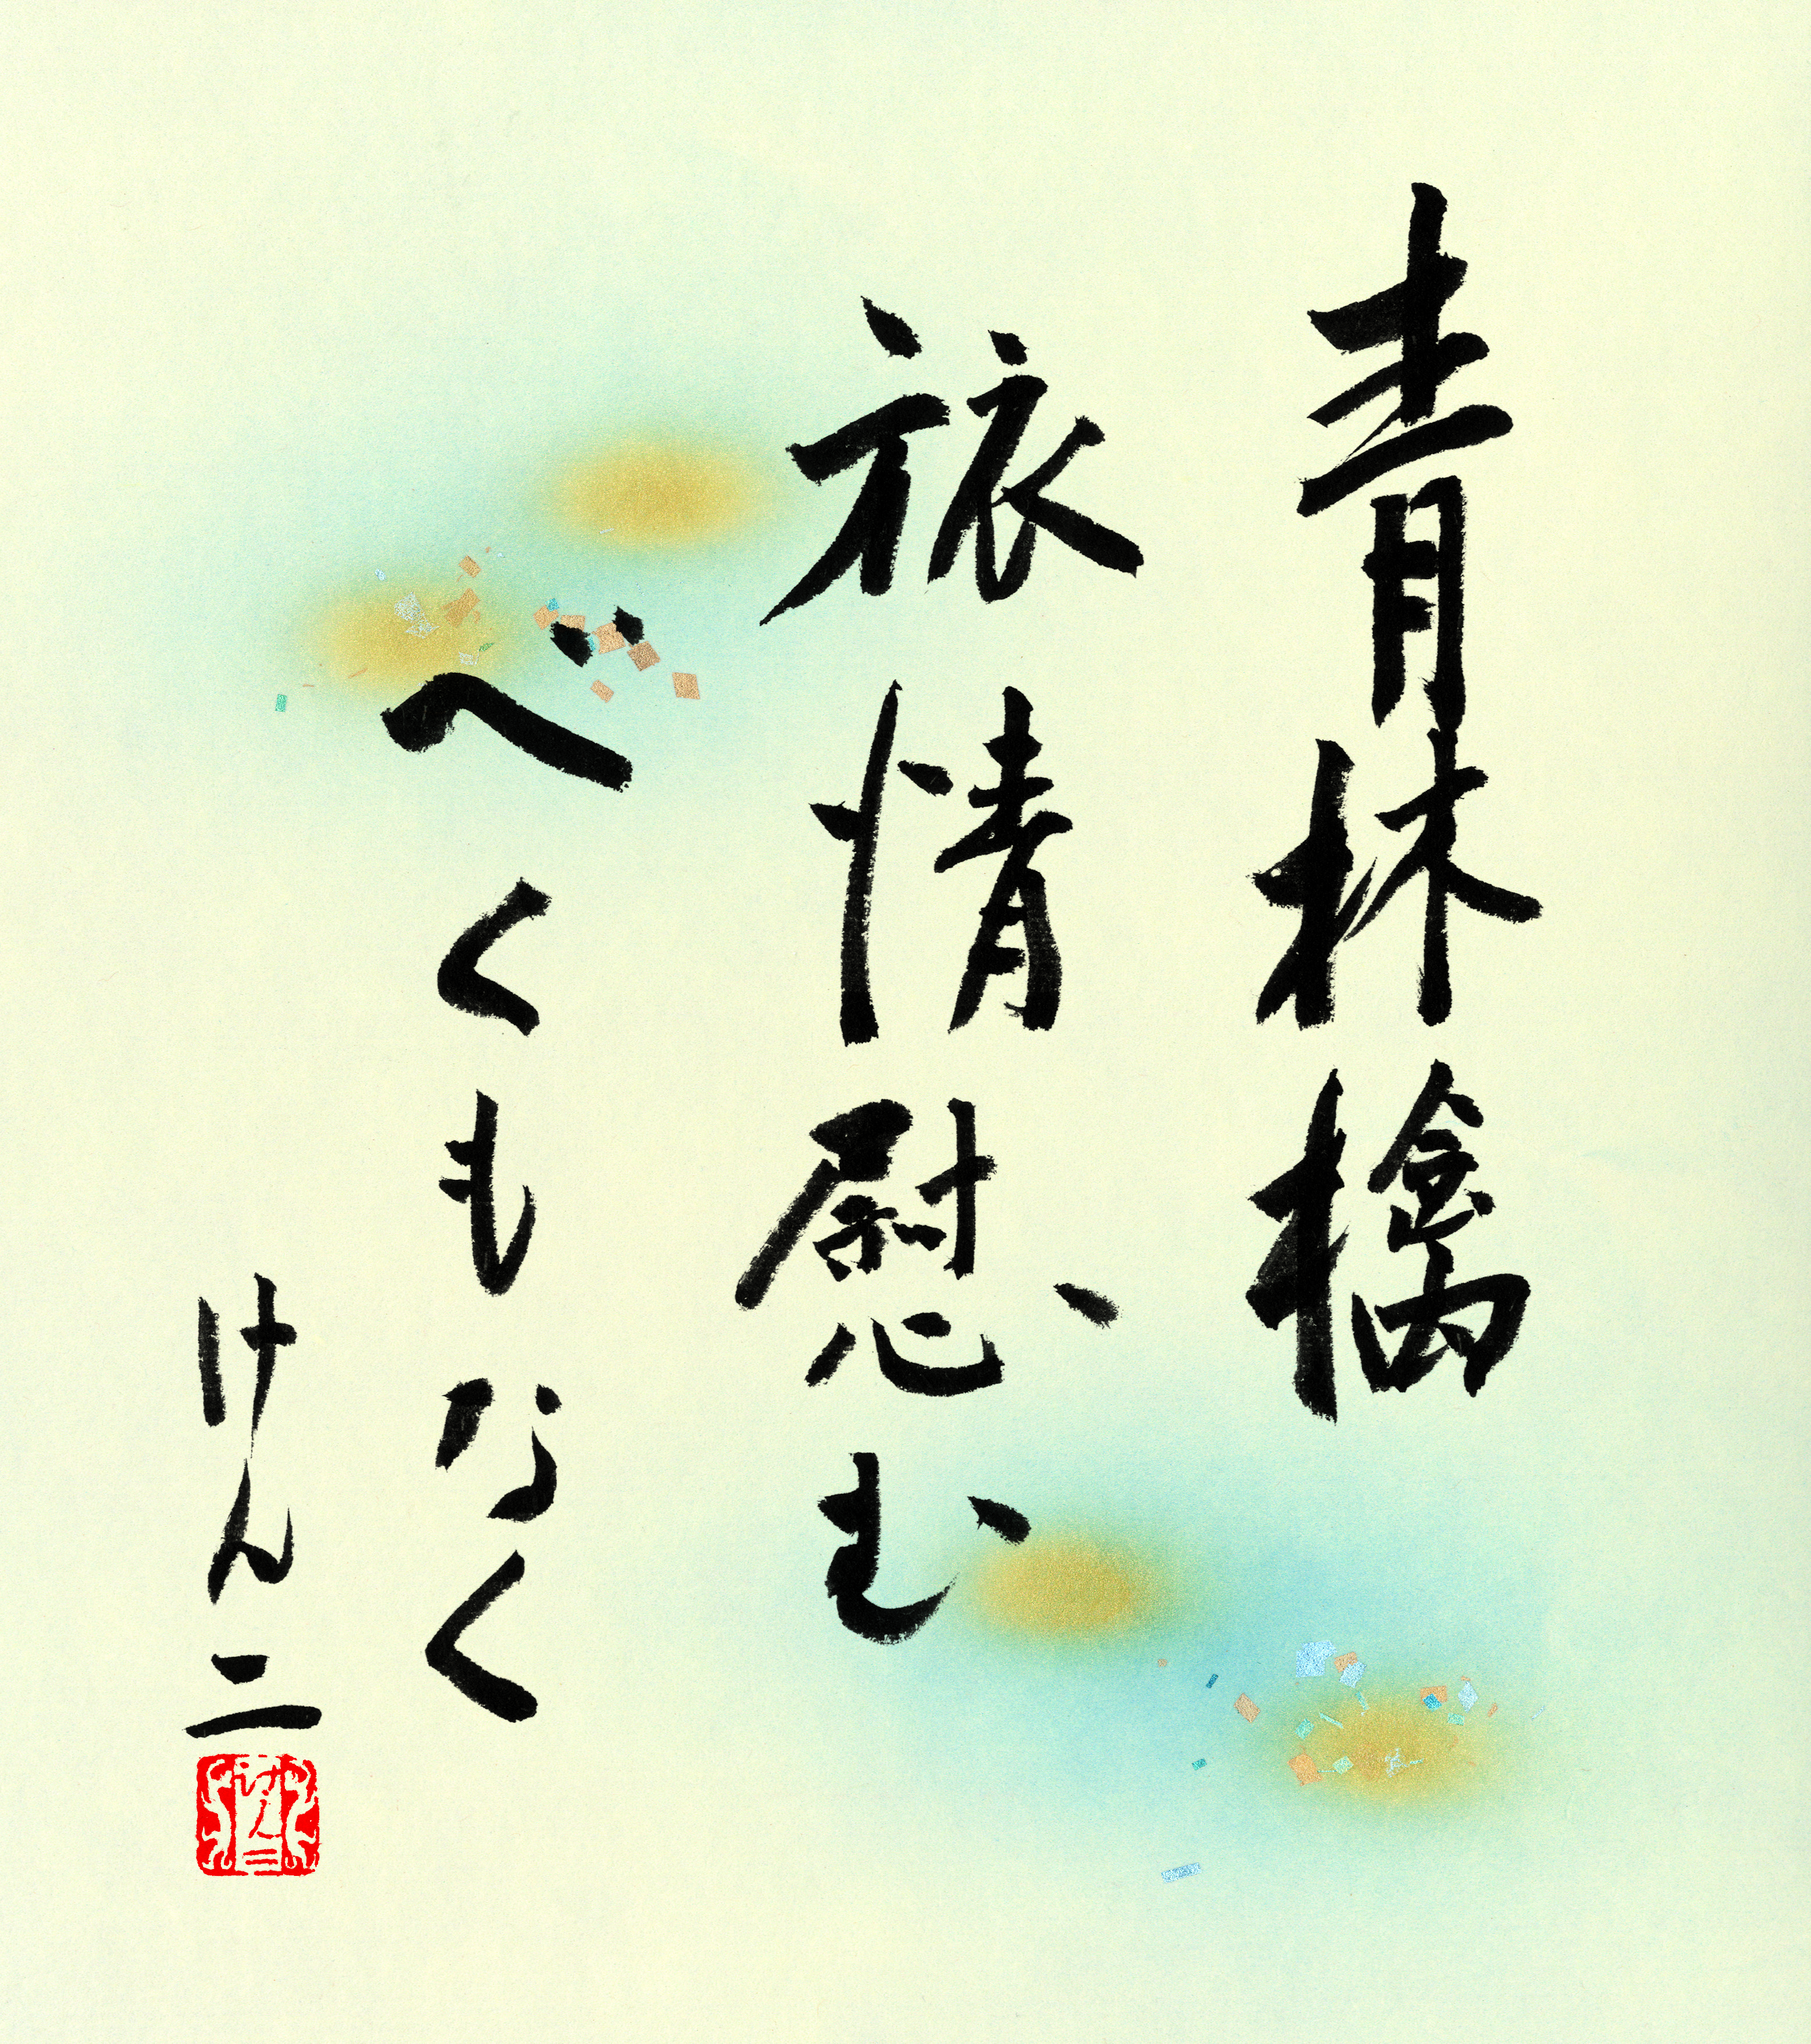 青林檎
旅情慰む
べくもなく
けん二
けん二